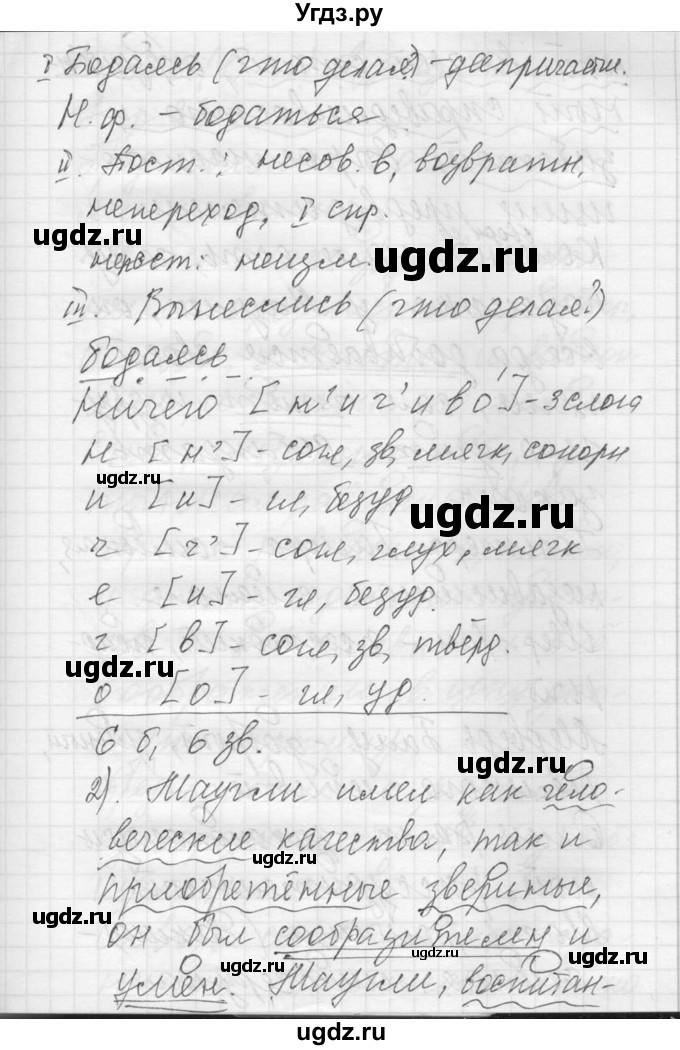 Угдз.ру
I Бодаясь (что делая?) - деепричасти.
Н. ф. - бодаться
II. Пост.: несов. в, возвратн,
непереход, I спр.
непост: неизм.
III. Вынеслись (что делая?)
бодаясь
Ничего [н'ич'иво́] - 3 слога
н [н'] - согл, зв, мягк, сонорн
и [и] - гл, безуд.
ч [ч'] - согл, глух, мягк
е [и] - гл, безуд.
г [в] - согл, зв, твёрд.
о [о] - гл, уд.
6 б, 6 зв.
2). Маугли имел как чело-
веческие качества, так и
приобретённые звериные,
он был сообразителен и
умён. Маугли, воспитан-
ugdz.ru
ugdz.ru
ugdz.ru
ugdz.ru
ugdz.ru
ugdz.ru
ugdz.ru
ugdz.ru
ugdz.ru
ugdz.ru
ugdz.ru